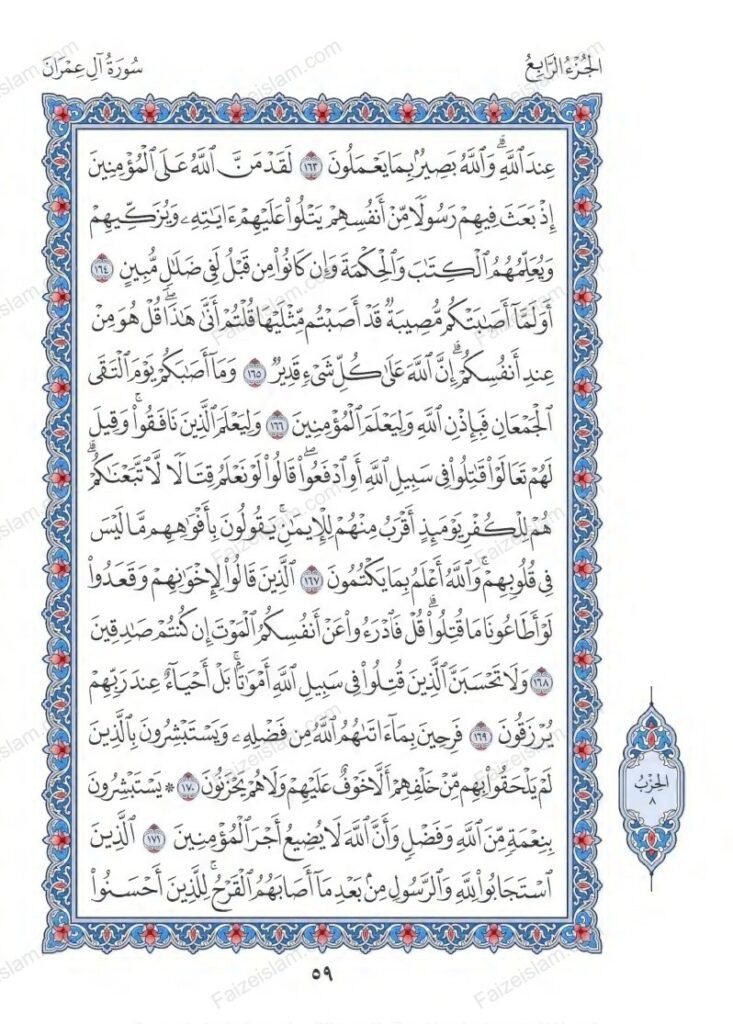 الجُزْءُ الرَّابِعُ
سُورَةُ آلِ عِمْرَانَ
عِندَ ٱللَّهِۗ وَٱللَّهُ بَصِيرُۢ بِمَا يَعۡمَلُونَ ١٦٣ لَقَدۡ مَنَّ ٱللَّهُ عَلَى ٱلۡمُؤۡمِنِينَ
إِذۡ بَعَثَ فِيهِمۡ رَسُولٗا مِّنۡ أَنفُسِهِمۡ يَتۡلُواْ عَلَيۡهِمۡ ءَايَٰتِهِۦ وَيُزَكِّيهِمۡ
وَيُعَلِّمُهُمُ ٱلۡكِتَٰبَ وَٱلۡحِكۡمَةَ وَإِن كَانُواْ مِن قَبۡلُ لَفِي ضَلَٰلٖ مُّبِينٍ ١٦٤
أَوَلَمَّآ أَصَٰبَتۡكُم مُّصِيبَةٞ قَدۡ أَصَبۡتُم مِّثۡلَيۡهَا قُلۡتُمۡ أَنَّىٰ هَٰذَاۖ قُلۡ هُوَ مِنۡ
عِندِ أَنفُسِكُمۡۗ إِنَّ ٱللَّهَ عَلَىٰ كُلِّ شَيۡءٖ قَدِيرٞ ١٦٥ وَمَآ أَصَٰبَكُمۡ يَوۡمَ ٱلۡتَقَى
ٱلۡجَمۡعَانِ فَبِإِذۡنِ ٱللَّهِ وَلِيَعۡلَمَ ٱلۡمُؤۡمِنِينَ ١٦٦ وَلِيَعۡلَمَ ٱلَّذِينَ نَافَقُواْۚ وَقِيلَ
لَهُمۡ تَعَالَوۡاْ قَٰتِلُواْ فِي سَبِيلِ ٱللَّهِ أَوِ ٱدۡفَعُواْۖ قَالُواْ لَوۡ نَعۡلَمُ قِتَالٗا لَّٱتَّبَعۡنَٰكُمۡۗ
هُمۡ لِلۡكُفۡرِ يَوۡمَئِذٍ أَقۡرَبُ مِنۡهُمۡ لِلۡإِيمَٰنِۚ يَقُولُونَ بِأَفۡوَٰهِهِم مَّا لَيۡسَ
فِي قُلُوبِهِمۡۚ وَٱللَّهُ أَعۡلَمُ بِمَا يَكۡتُمُونَ ١٦٧ ٱلَّذِينَ قَالُواْ لِإِخۡوَٰنِهِمۡ وَقَعَدُواْ
لَوۡ أَطَاعُونَا مَا قُتِلُواْۗ قُلۡ فَٱدۡرَءُواْ عَنۡ أَنفُسِكُمُ ٱلۡمَوۡتَ إِن كُنتُمۡ صَٰدِقِينَ
١٦٨ وَلَا تَحۡسَبَنَّ ٱلَّذِينَ قُتِلُواْ فِي سَبِيلِ ٱللَّهِ أَمۡوَٰتَۢاۚ بَلۡ أَحۡيَآءٌ عِندَ رَبِّهِمۡ
يُرۡزَقُونَ ١٦٩ فَرِحِينَ بِمَآ ءَاتَىٰهُمُ ٱللَّهُ مِن فَضۡلِهِۦ وَيَسۡتَبۡشِرُونَ بِٱلَّذِينَ
لَمۡ يَلۡحَقُواْ بِهِم مِّنۡ خَلۡفِهِمۡ أَلَّا خَوۡفٌ عَلَيۡهِمۡ وَلَا هُمۡ يَحۡزَنُونَ ١٧٠ * يَسۡتَبۡشِرُونَ
بِنِعۡمَةٖ مِّنَ ٱللَّهِ وَفَضۡلٖ وَأَنَّ ٱللَّهَ لَا يُضِيعُ أَجۡرَ ٱلۡمُؤۡمِنِينَ ١٧١ ٱلَّذِينَ
ٱسۡتَجَابُواْ لِلَّهِ وَٱلرَّسُولِ مِنۢ بَعۡدِ مَآ أَصَابَهُمُ ٱلۡقَرۡحُۚ لِلَّذِينَ أَحۡسَنُواْ
الحِزْبُ
٨
٥٩
Faizeislam.com